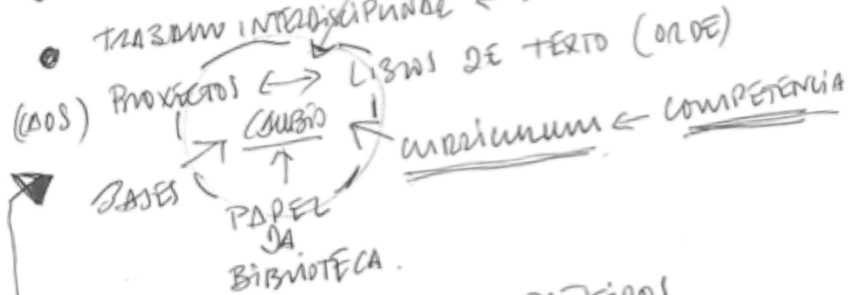 TRABALLO INTERDISCIPLINAR ←
(CAOS) PROXECTOS ↔ LIBROS DE TEXTO (ORDE)
CAMBIO
CURRICULUM ← COMPETENCIA
BASES
PAPEL
DA
BIBLIOTECA.